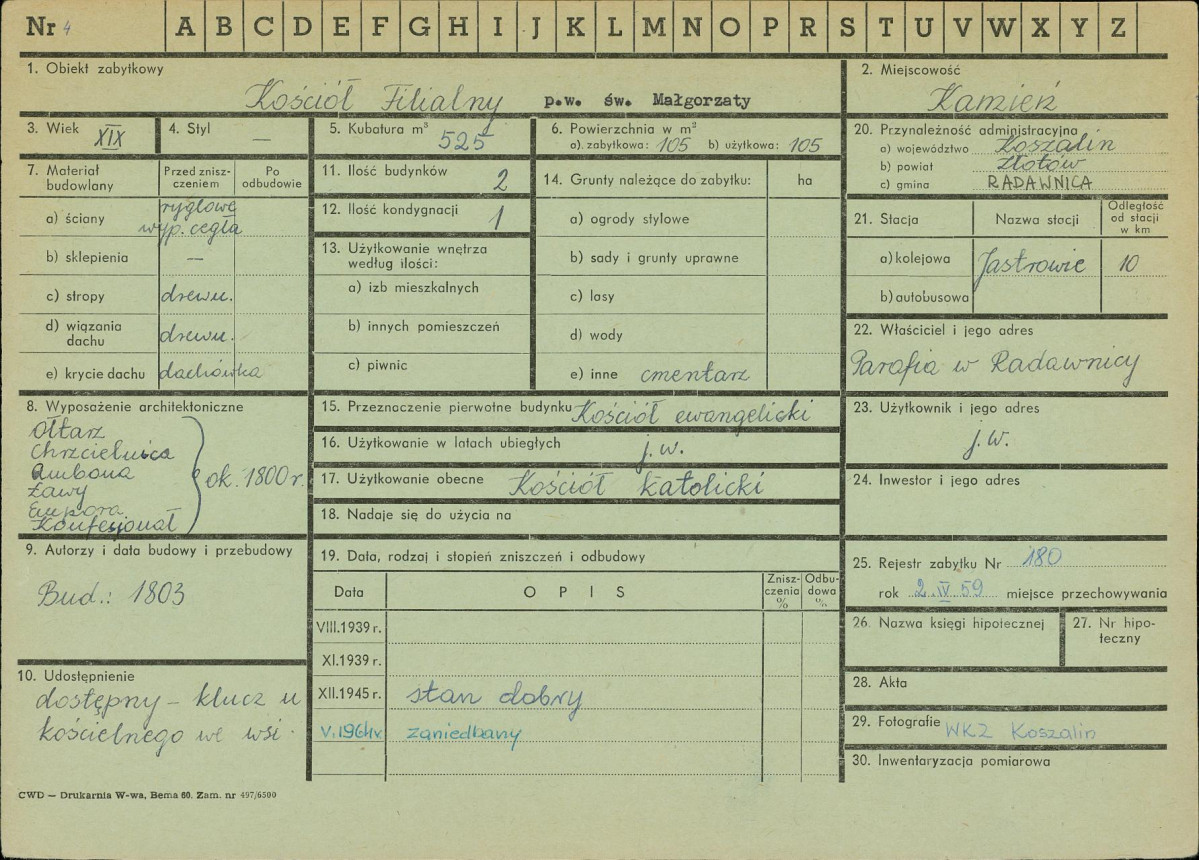 Nr 4 A B C D E F G H I J K L M N O P R S T U V W X Y Z
1. Obiekt zabytkowy
Kościół Filialny p.w. św. Małgorzaty
2. Miejscowość
Kamień
3. Wiek XIX
4. Styl —
5. Kubatura m³ 525
6. Powierzchnia w m²
a). zabytkowa: 105 b) użytkowa: 105
20. Przynależność administracyjna
a) województwo Koszalin
b) powiat Złotów
c) gmina RADAWNICA
7. Materiał budowlany
Przed zniszczeniem
Po odbudowie
a) ściany ryglowe
wyp. cegła
b) sklepienia —
c) stropy drewn.
d) wiązania
dachu drewn.
e) krycie dachu dachówka
11. Ilość budynków 2
12. Ilość kondygnacji 1
13. Użytkowanie wnętrza
według ilości:
a) izb mieszkalnych
b) innych pomieszczeń
c) piwnic
14. Grunty należące do zabytku: ha
a) ogrody stylowe
b) sady i grunty uprawne
c) lasy
d) wody
e) inne cmentarz
21. Stacja
Nazwa stacji
Odległość
od stacji
w km
a) kolejowa Jastrowie 10
b) autobusowa
22. Właściciel i jego adres
Parafia w Radawnicy
8. Wyposażenie architektoniczne
Ołtarz
Chrzcielnica
Ambona
Ławy
Empora
Konfesjonał
ok. 1800 r.
15. Przeznaczenie pierwotne budynku Kościół ewangelicki
16. Użytkowanie w latach ubiegłych j. w.
17. Użytkowanie obecne Kościół katolicki
18. Nadaje się do użycia na
23. Użytkownik i jego adres
j. w.
24. Inwestor i jego adres
9. Autorzy i data budowy i przebudowy
Bud.: 1803
19. Data, rodzaj i stopień zniszczeń i odbudowy
Data
OPIS
Zniszczenia %
Odbudowa %
VIII.1939 r.
XI.1939 r.
XII.1945 r. stan dobry
V.1964r. zaniedbany
25. Rejestr zabytku Nr 180
rok 2.IV.59 miejsce przechowywania
26. Nazwa księgi hipotecznej
27. Nr hipo-
teczny
10. Udostępnienie
dostępny – klucz u
kościelnego we wsi.
28. Akta
29. Fotografie WKZ Koszalin
30. Inwentaryzacja pomiarowa
CWD — Drukarnia W-wa, Bema 60. Zam. nr 497/6500